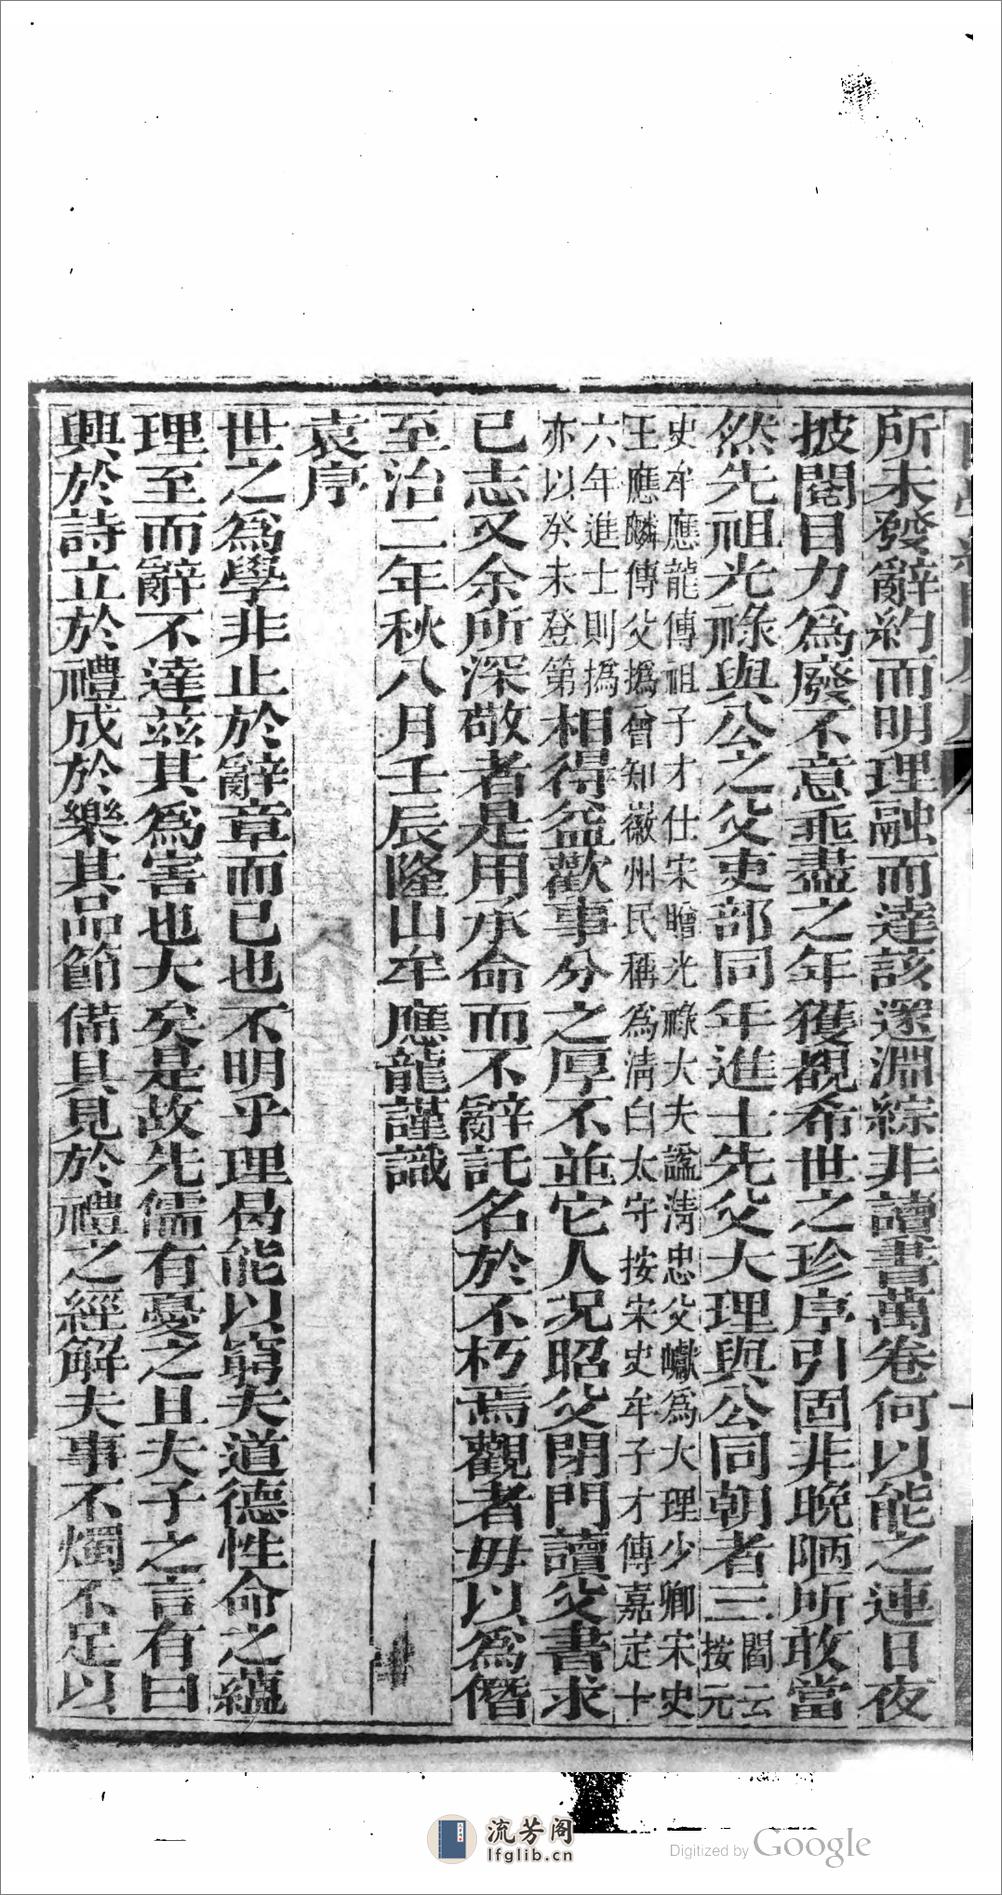 所未發辭約而明理融而達該邃淵綜非讀書萬卷何以能之連日夜
披閱目力為廢不意垂盡之年獲覩希世之珍序引固非晚陋所敢當
然先祖光祿與公之父吏部同年進士先父大理與公同朝者三閻云按元
史牟應龍傳祖子才仕宋贈光祿大夫謚清忠父巘為大理少卿宋史
王應麟傳父撝曾知徽州民稱為清白太守按宋史牟子才傳嘉定十
六年進士則撝
亦以癸未登第相得益歡事分之厚不並它人况昭父閉門讀父書求
已志又余所深敬者是用承命而不辭託名於不朽焉觀者毋以為僭
至治二年秋八月壬辰隆山牟應龍謹識
袁序
世之為學非止於辭章而已也不明乎理曷能以窮夫道德性命之蘊
理至而辭不達兹其為害也大矣是故先儒有憂之且夫子之言有曰
興於詩立於禮成於樂其品節備具見於禮之經解夫事不燭不足以
流芳阁
lfglib.cn
Digitized by Google